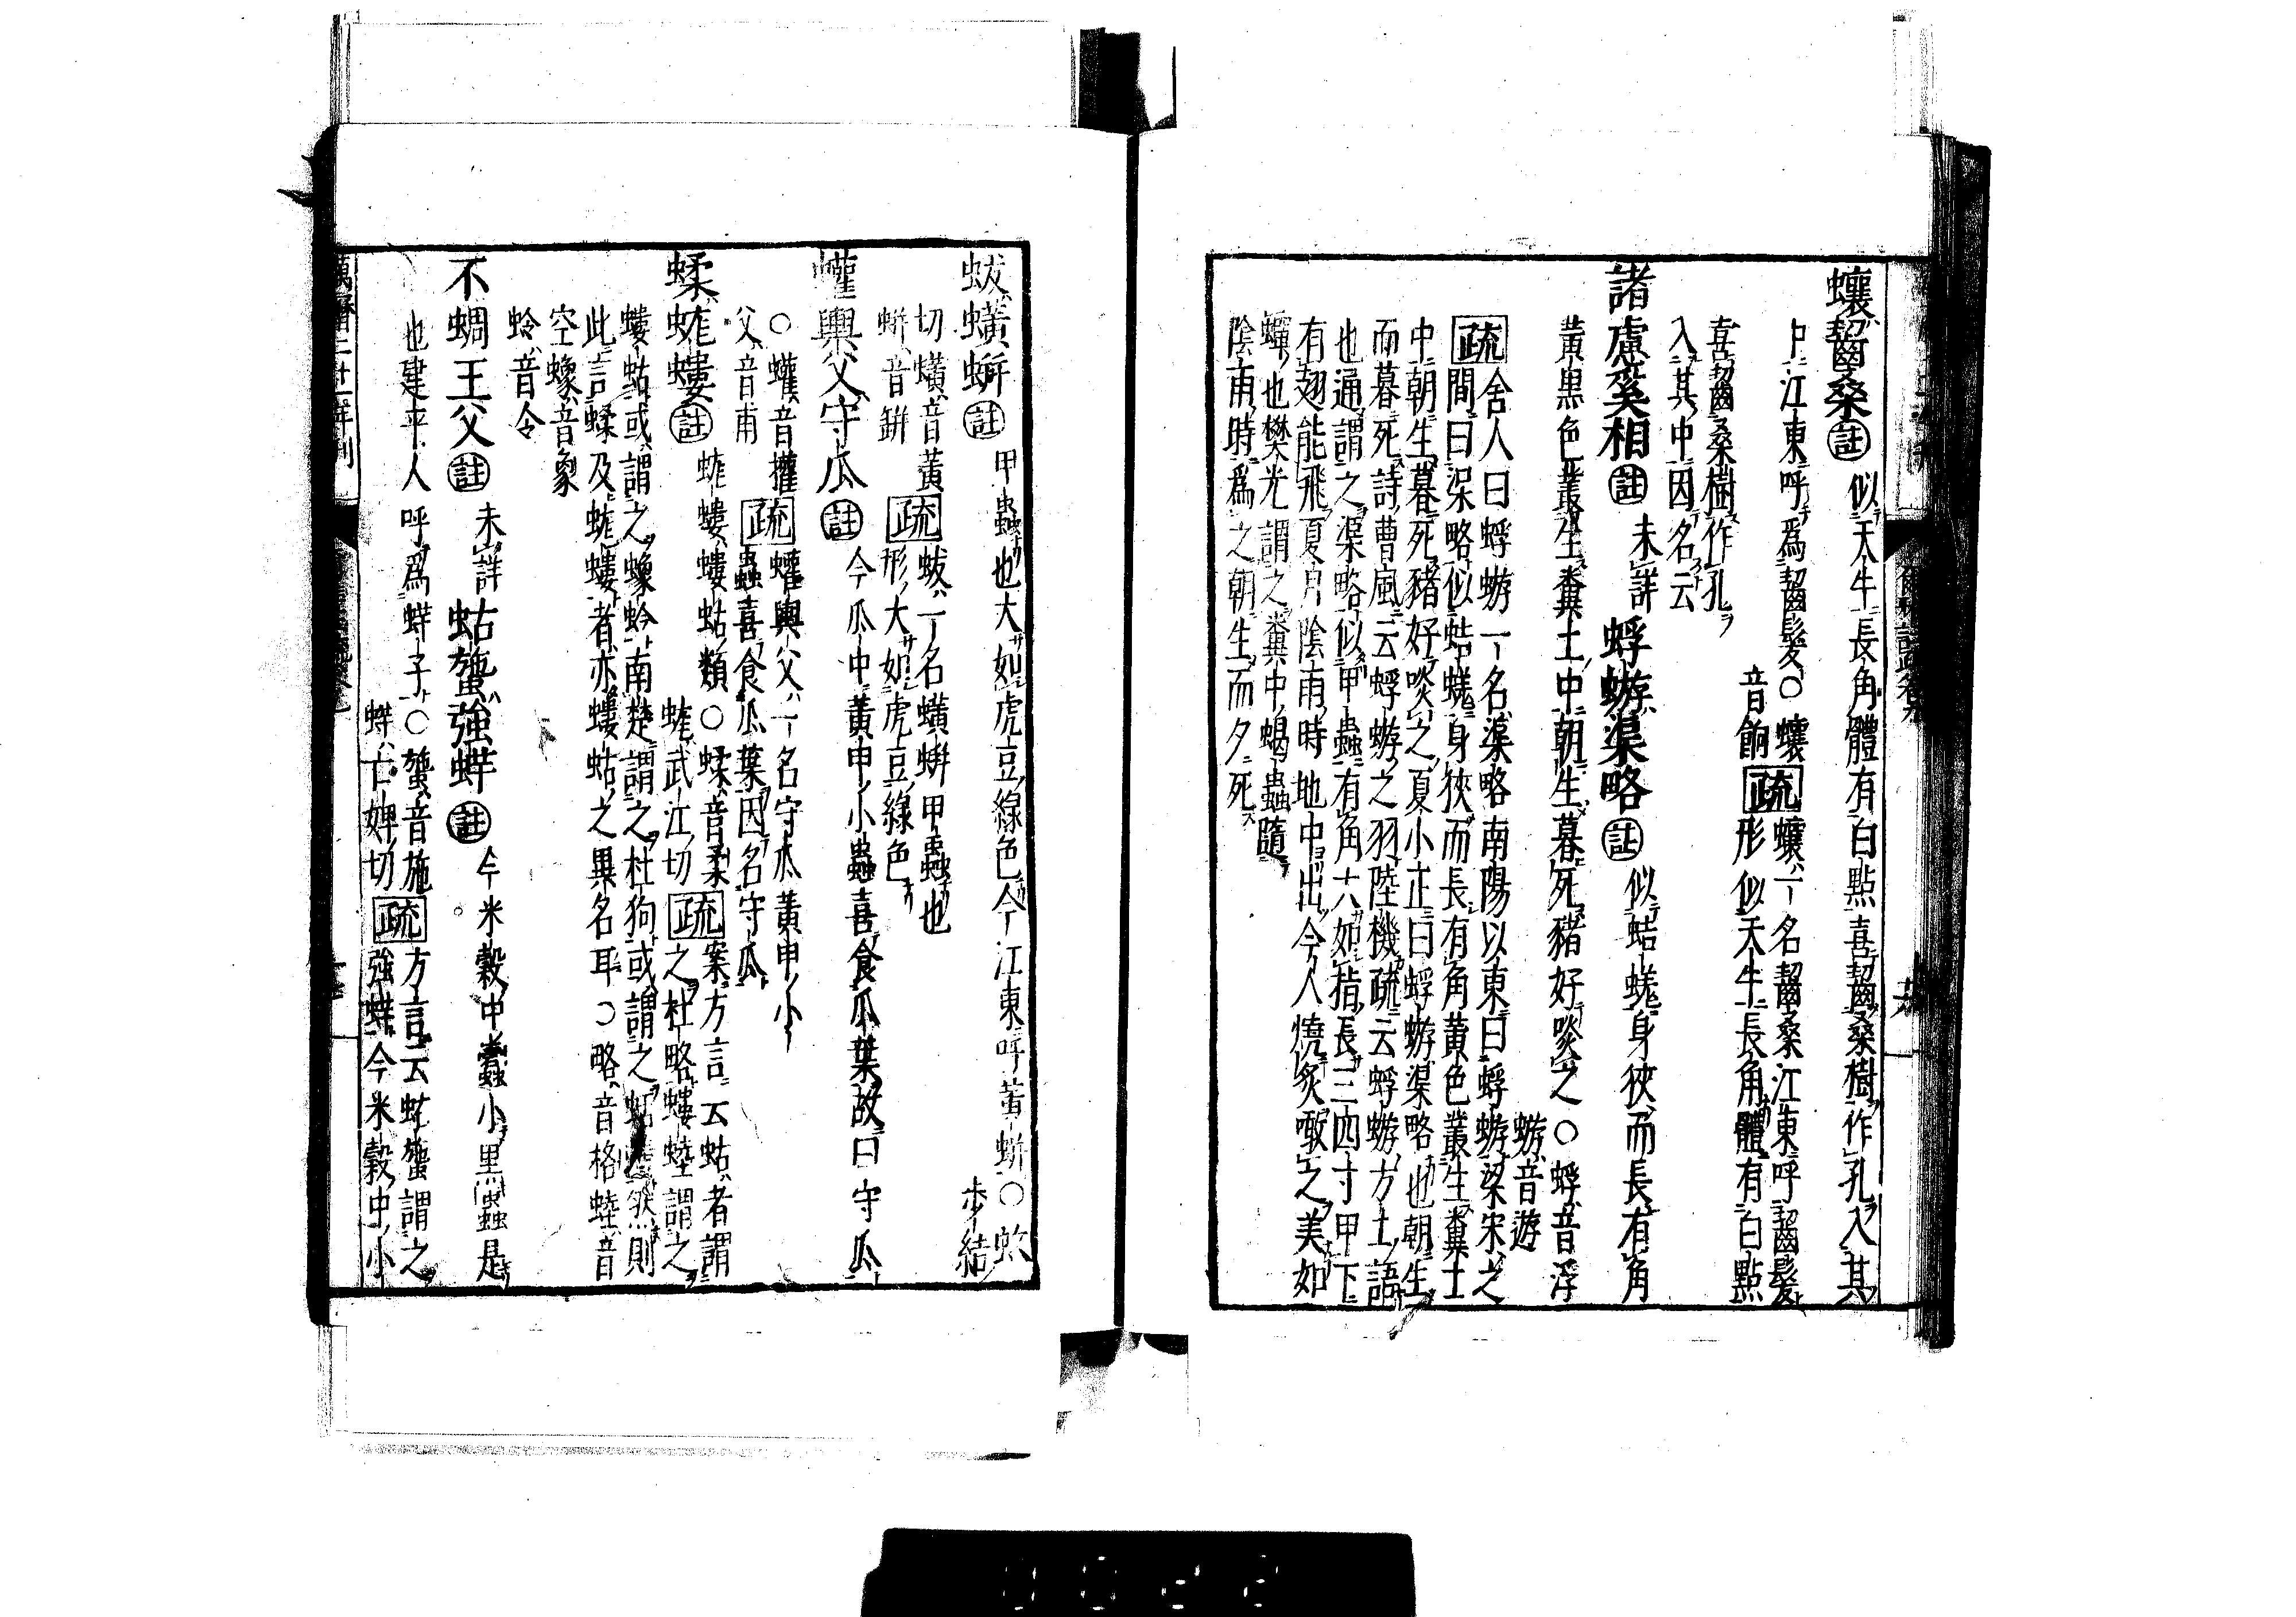 蠰齧桑註似天牛長角體有白點喜齧桑樹作孔入其
中江東呼爲齧髮○蠰音餉疏蠰一名齧桑江東呼齧髮
形似天牛長角體有白點
喜齧桑樹作孔
入其中因名云
諸慮奚相註未詳蜉蝣渠略註似蛣蜣身狹而長有角
黃黑色叢生糞土中朝生暮死豬好啖之○蜉音浮
蝣音遊
疏舍人曰蜉蝣一名渠略南陽以東曰蜉蝣梁宋之
間曰渠略似蛣蜣身狹而長有角黃色叢生糞土
中朝生暮死豬好啖之夏小正曰蜉蝣渠略也朝生
而暮死詩曹風云蜉蝣之羽陸機疏云蜉蝣方土語
也通謂之渠略似甲蟲有角大如指長三四寸甲下
有翅能飛夏月陰雨時地中出今人燒炙噉之美如
蟬也樊光謂之糞中蝎蟲隨
陰雨時爲之朝生而夕死
蛂蟥蛢註甲蟲也大如虎豆綠色今江東呼黃蛢○蛂
步結
切蟥音黃
蛢音缾疏蛂一名蟥蛢甲蟲也
形大如虎豆綠色
蠸輿父守瓜註今瓜中黃甲小蟲喜食瓜葉故曰守瓜
○蠸音權
父音甫疏蠸輿父一名守瓜黃甲小
蟲喜食瓜葉因名守瓜
蝚蛖螻註蛖螻螻蛄類○蝚音柔
蛖武江切疏案方言云蛄者謂
之杜略螻蛭謂之
螻蛄或謂之蟓蛉南楚謂之杜狗或謂之蛄
則
此言蝚及蛖螻者亦螻蛄之異名耳○略音格
音
空蟓音象
蛉音令
不蜩王父註未詳蛄䗐強蛘註今米穀中蠹小黑蟲是
也建平人呼爲蛘子○䗐音施
蛘亡婢切疏方言云蛄䗐謂之
強蛘今米穀中小